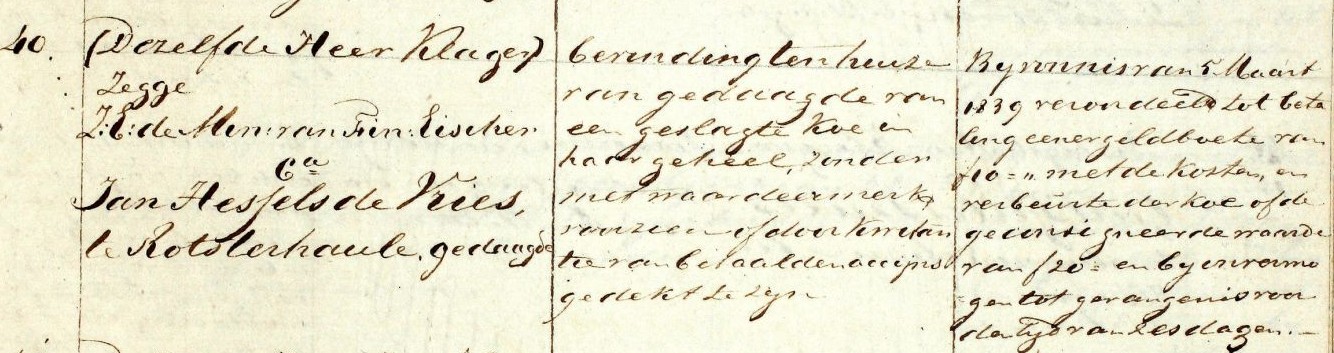 40.
(Dezelfde Heer Klager)
zegge
Z:E: de Min: van Fin: Eischer
Ca
Jan Hessels de Vries,
te Rotsterhaule, gedaagde
bevinding ten huize
van gedaagde van
een geslagte Koe in
haar geheel, zonder
met waardeermerk
voorzien of door kwitan
tie van betaalden accijns
gedekt te zijn
By vonnis van 5 Maart
1839 veroordeeld tot beta
ling eener geldboete van
f10 = „ met de kosten, en
verbeurte der koe of de
geconsigneerde waarde
van f 20 = en by onvermo
gen tot gevangenis voor
den tyd van zes dagen. —